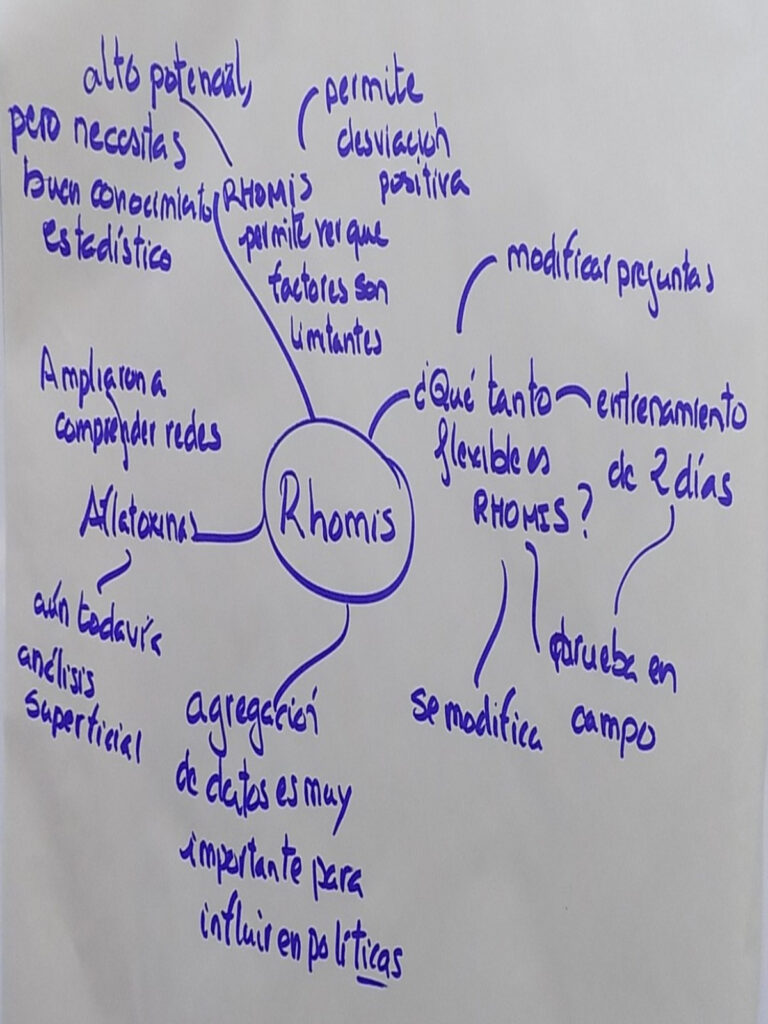 alto potencial,
pero necesitas
buen conocimiento
estadístico
permite
desviación
positiva
RHOMIS
permite ver que
factores son
limitantes
modificar preguntas
¿Qué tanto
flexible es
RHOMIS?
entrenamiento
de 2 días
prueba en
campo
se modifica
Rhomis
Ampliaron a
comprender redes
Aflatoxinas
aún todavía
análisis
superficial
agregación
de datos es muy
importante para
influir en políticas